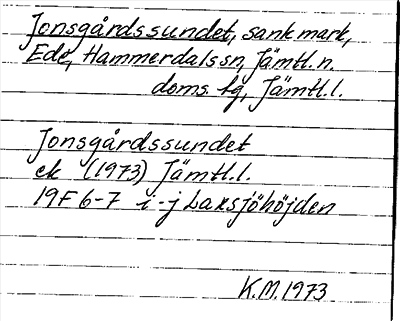 Jonsgårdssundet, sank mark,
Ede, Hammerdals sn, Jämtl. n.
doms tg, Jämtl.l.
Jonsgårdssundet
ek (1973) Jämtl.l.
19F 6-7 i-j Laxsjöhöjden
K.M. 1973